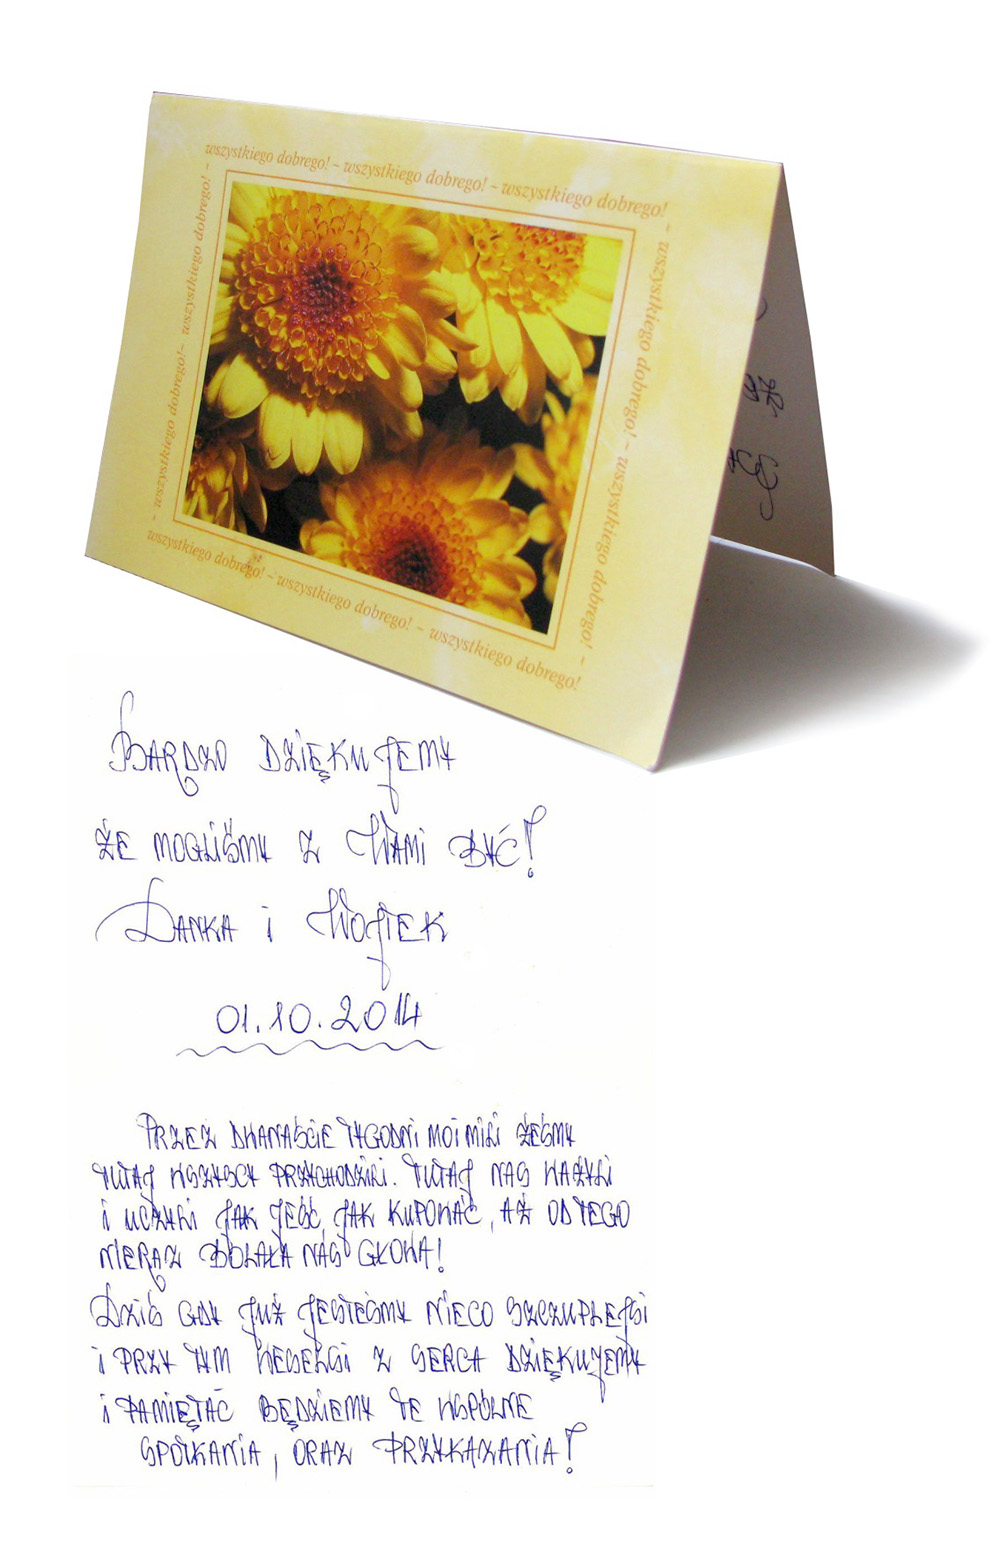 wszystkiego dobrego! ~ wszystkiego dobrego! ~ wszystkiego dobrego!
~ wszystkiego dobrego! ~ wszystkiego dobrego! ~
~ wszystkiego dobrego! ~ wszystkiego dobrego! ~
wszystkiego dobrego! ~ wszystkiego dobrego! ~ wszystkiego dobrego!
BARDZO DZIĘKUJEMY
ŻE MOGLIŚMY Z WAMI BYĆ!
DANKA i WOJTEK
01.10.2014
PRZEZ DWANAŚCIE TYGODNI MOI MILI ŻEŚMY
TUTAJ WSZYSCY PRZYCHODZILI. TUTAJ NAS WAŻYLI
i UCZYLI JAK JEŚĆ, JAK KUPOWAĆ, AŻ OD TEGO
NIERAZ BOLAŁA NAS GŁOWA!
DZIŚ GDY JUŻ JESTEŚMY NIECO SZCZUPLEJSI
i PRZY TYM WESELSI Z SERCA DZIĘKUJEMY
i PAMIĘTAĆ BĘDZIEMY TE WSPÓLNE
SPOTKANIA, ORAZ PRZYKAZANIA!